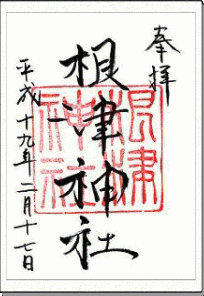 奉拝
根津神社
根津
神社
平成十九年二月十七日